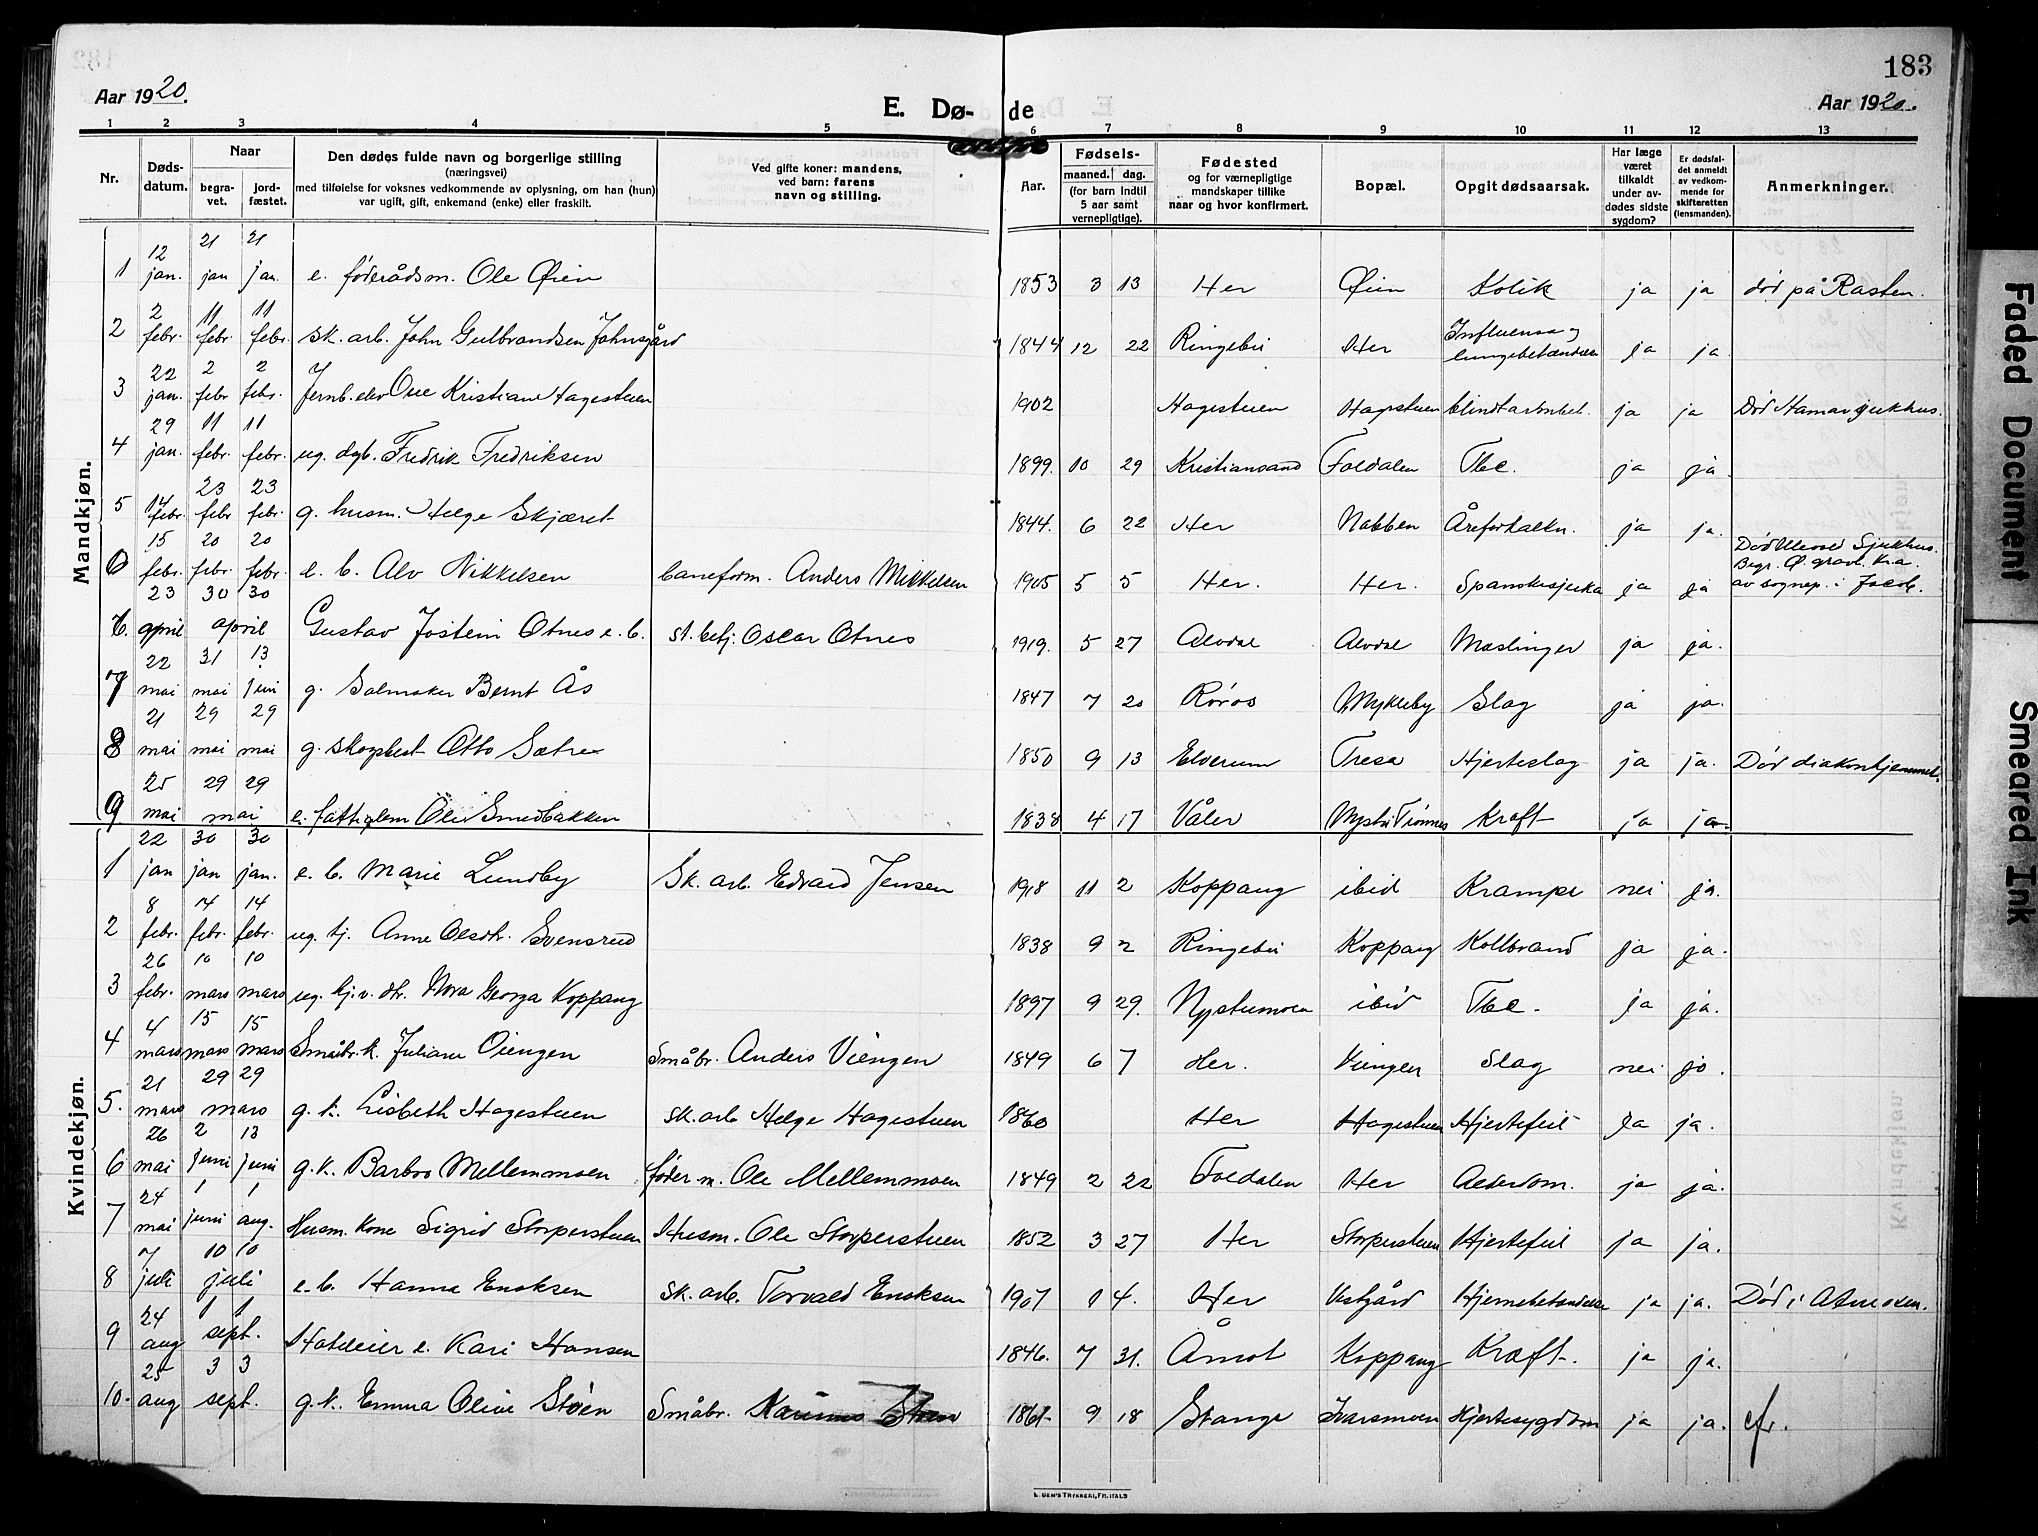 183
Aar 1920. E. Dø- de Aar 1920.
1 2 3 4 5 6 7 8 9 10 11 12 13
Nr. Døds-datum. Naar begra-vet. jord-fæstet. Den dødes fulde navn og borgerlige stilling (næringsvei) med tilføielse for voksnes vedkommende av oplysning, om han (hun) var ugift, gift, enkemand (enke) eller fraskilt. Ved gifte koner: mandens, ved barn: farens navn og stilling. Aar. Fødsels- maaned. dag. (for barn indtil 5 aar samt vernepligtige). Fødested og for værnepligtige mandskaper tillike naar og hvor konfirmert. Bopæl. Opgit dødsaarsak. Har læge været tilkaldt under av-dødes sidste sygdom? Er dødsfal-det anmeldt av vedkom-mende for skifteretten (lensmanden). Anmerkninger.
Mandkjøn.
1 12 jan. 21 jan 21 jan. e. føderådsm. Ole Øien 1853 3 13 Her Øien Kolik ja ja død på Rasten.
2 2 febr. 11 febr. 11 febr. sk. arb. John Gulbrandsen Johnsgård 1844 12 22 Ringebu Her Influensa og lungebetændelse ja ja
3 22 jan. 2 febr 2 febr. Jernb. elev Ole Kristian Hagestuen 1902 Hagestuen Hagestuen blindtarmbet. ja ja Død Hamar sjukhus.
4 29 jan. 11 febr. 11 febr. ug. dgb. Fredrik Fredriksen 1899. 10 29 Kristiansand Foldalen Tbc. ja ja.
5 14 febr. 23 febr 23 febr. g. husm. Helge Skjæret 1844. 6 22 Her Nabben Åreforkalkn. ja ja.
6 15 febr. 20 febr. 20 febr. e. b. Alv Mikkelsen baneform. Anders Mikkelsen 1905 5 5 Her. Her. Spanskesjuka ja ja Død Ullevål Sjukhus. Begr. Ø. gravl. Kr.a. av sognep. i Jacob.
6. 23 april 30 30 april Gustav Jostein Otnes e. b. st. betj. Oscar Otnes 1919. 5 27 Alvdal Alvdal Mæslinger ja ja.
7 22 mai 31 mai 13 juni g. Salmaker Bernt Ås 1847 7 20 Røros Mykleby Slag ja ja.
8 21 mai 29 mai 29 mai g. skogbest. Otto Sætre 1850 9 13 Elverum Tresa Hjerteslag ja ja. Død diakonhjemmet.
9. 25 mai 29 29 mai e. fattiglem Ole Smedbakken 1838 4 17 Våler Nystu Trønnes Kræft ja ja.
Kvindekjøn.
1 22 jan 30 jan 30 jan. e. b. Marie Lundby Sk. arb. Edvard Jensen 1918 11 2 Koppang ibid Krampe nei ja.
2 8 febr. 14 febr. 14 febr. ug. tj. Anne Olsdtr. Svensrud 1838 9 2 Ringebu Koppang Koldbrand ja ja.
3 26 febr. 10 mars 10 mars ug. kj.v. dtr. Nora Georga Koppang 1897 9 29. Nystumoen ibid Tbc. ja ja.
4 4 mars 15 mars 15 mars Småbr. k. Juliane Viengen Småbr. Anders Viengen 1849 6 7 Her. Viengen Slag nei ja.
5. 21 mars 29 29 mars g. k. Lisbeth Hagestuen sk. arb Helge Hagestuen 1860 Her Hagestuen Hjertefeil ja ja.
6 26 mai 2 juni 13 juni g. k. Barbro Mellemmoen føder m. Ole Mellemmoen 1849 2 22 Foldalen Her Alderdom. ja ja.
7 24 mai 1 juni 1 aug. Husm. kone Sigrid Storperstuen Husm. Ole Storperstuen 1852 3 27 Her Storperstuen Hjertefeil ja ja.
8 7 juli 10 10 juli e. b. Hanna Enoksen sk. arb. Torvald Enoksen 1907 1 4. Her Vestgård Hjernebetændelse ja ja. Død i Atneosen.
9 24 aug 1 1 sept. Hoteleier e. Kari Hansen 1846. 7 31. Åmot Koppang Kræft. ja ja.
10. 25 aug 3 3 sept. g. k. Emma Oline Støen Småbr. Støen 1861 9 18 Stange Ivarsmoen Hjertesygdom ja ja. cfr.
Faded Document
Smeared Ink